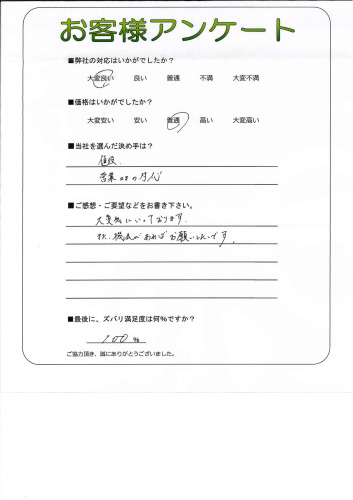 お客様アンケート
■弊社の対応はいかがでしたか？
大変良い 良い 普通 不満 大変不満
■価格はいかがでしたか？
大変安い 安い 普通 高い 大変高い
■当社を選んだ決め手は？
値段.
営業の方の
■ご感想・ご要望などをお書き下さい。
大変気にいっております.
又、機会があればお願いしたいです。
■最後に、ズバリ満足度は何%ですか？
100 %
ご協力頂き、誠にありがとうございました。